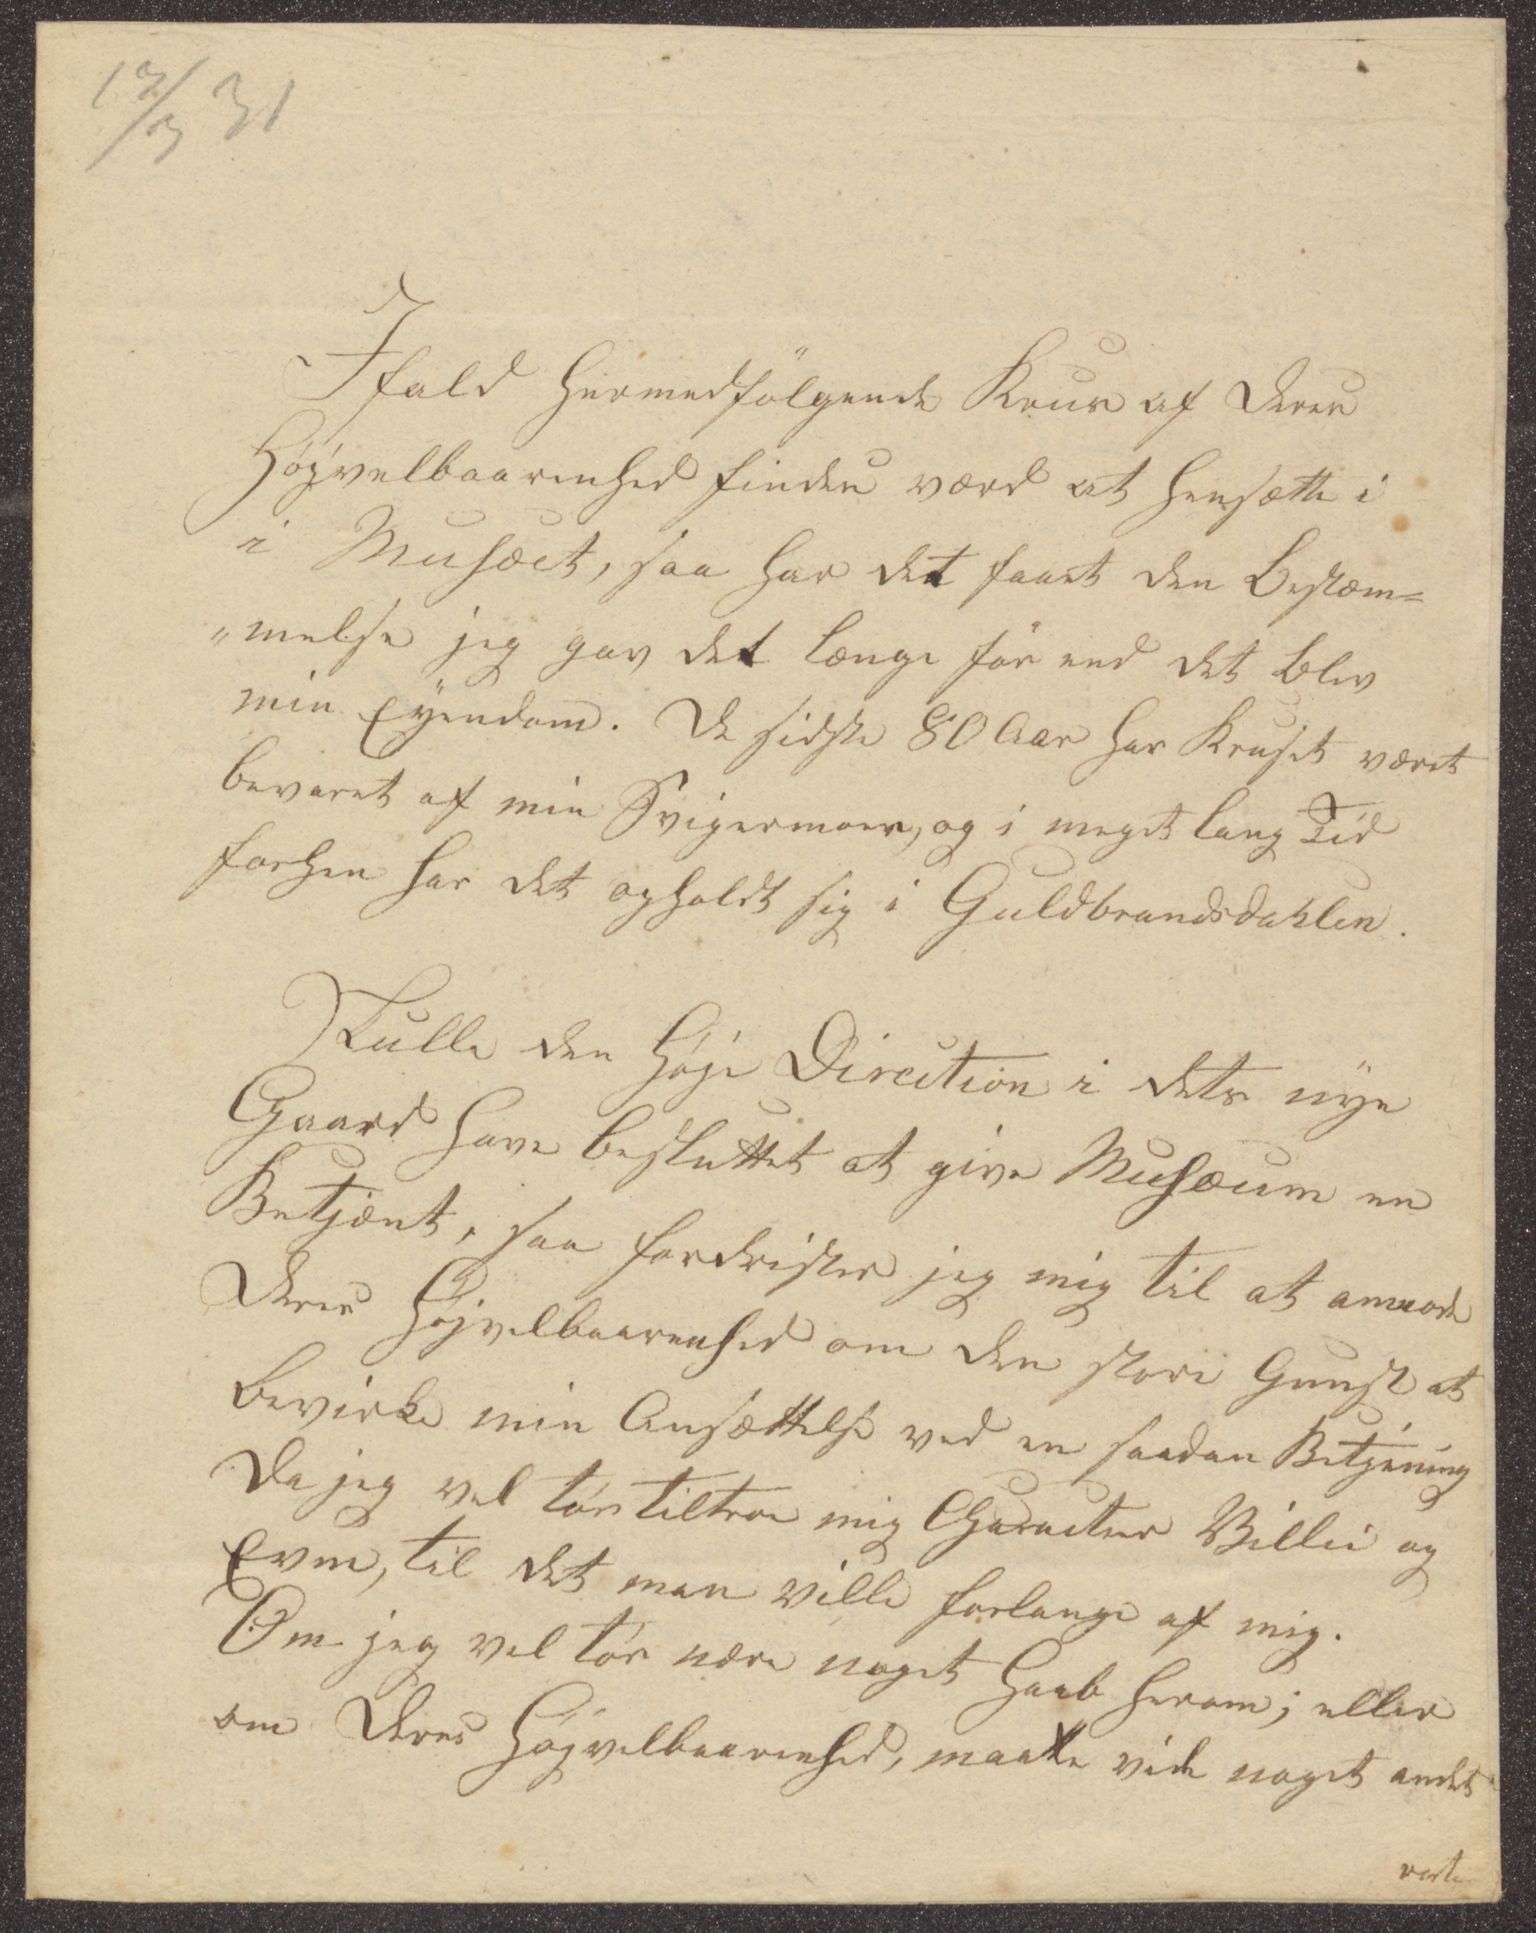 12/3 31
Ifald hermedfölgende Kruus af Deres
Höjvelbaarenhed findes værd at hensætte i
i Musæet, saa har det faaet den Bestæm=
"melse jeg gav det længe för end det blev
min Eÿendom. De sidste 80 Aar har Kruset været
bevaret af min Svigermoer, og i meget lang Tid
forhen har det opholdt sig i Guldbrandsdahlen.
Skulle den höje Direction i dets nÿe
Gaard have besluttet at give Musæum en
Betjent, saa fordrister jeg mig til at anmode
Deres Höjvelbaarenhed om den store Gunst at
bevirke min Ansættelse ved en saadan Betjening
da jeg vel tör tiltroe mig Character Villie og
Evne, til det man ville forlange af mig.
Om jeg vel tör nære noget Haab herom; eller
om Deres Höjvelbaarenhed, maatte vide noget andet
verte